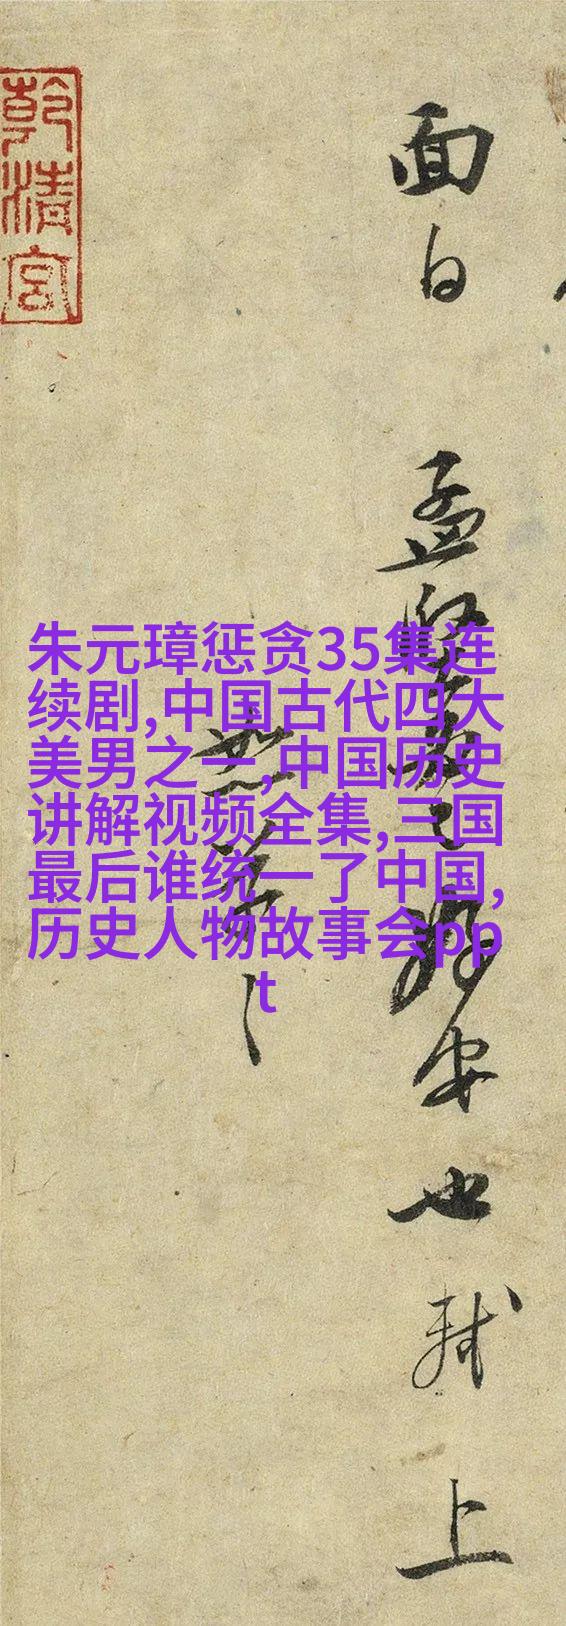 乾清宫
面白
孟堅
安也軾
上
朱元璋惩贪35集连
续剧,中国古代四大
美男之一,中国历史
讲解视频全集,三国
最后谁统一了中国,
历史人物故事会pp
t